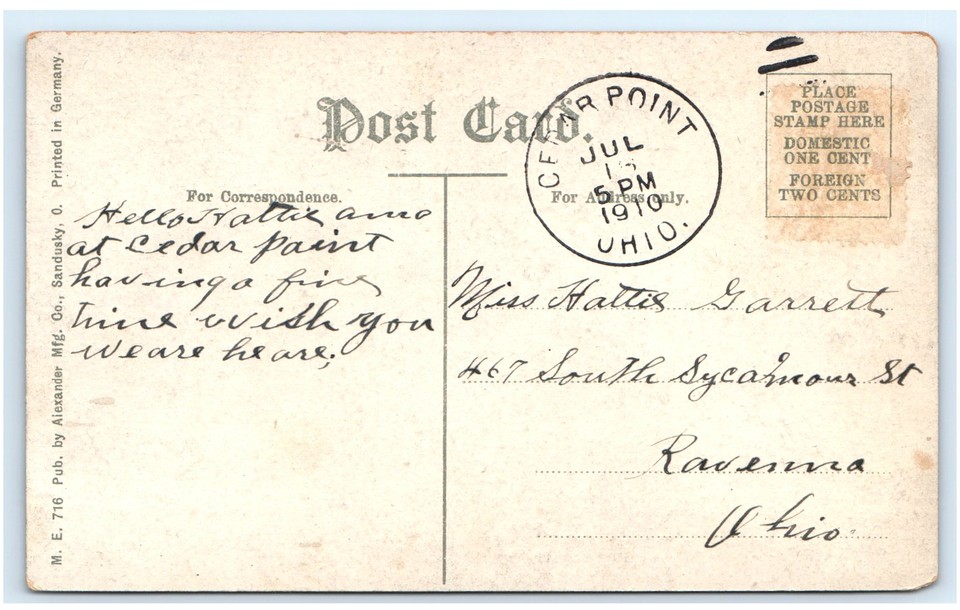 Post Card.
For Correspondence.
For Address only.
CEDAR POINT
JUL
5 PM
1910
OHIO.
PLACE
POSTAGE
STAMP HERE
DOMESTIC
ONE CENT
FOREIGN
TWO CENTS
Hello Hattie ama
at Cedar paint
having a fine
time wish you
weare heare;
Miss Hattie Garrett
467 South Sycamour St
Ravenna
Ohio.
M. E. 716 Pub. by Alexander Mfg. Co., Sandusky, O. Printed in Germany.